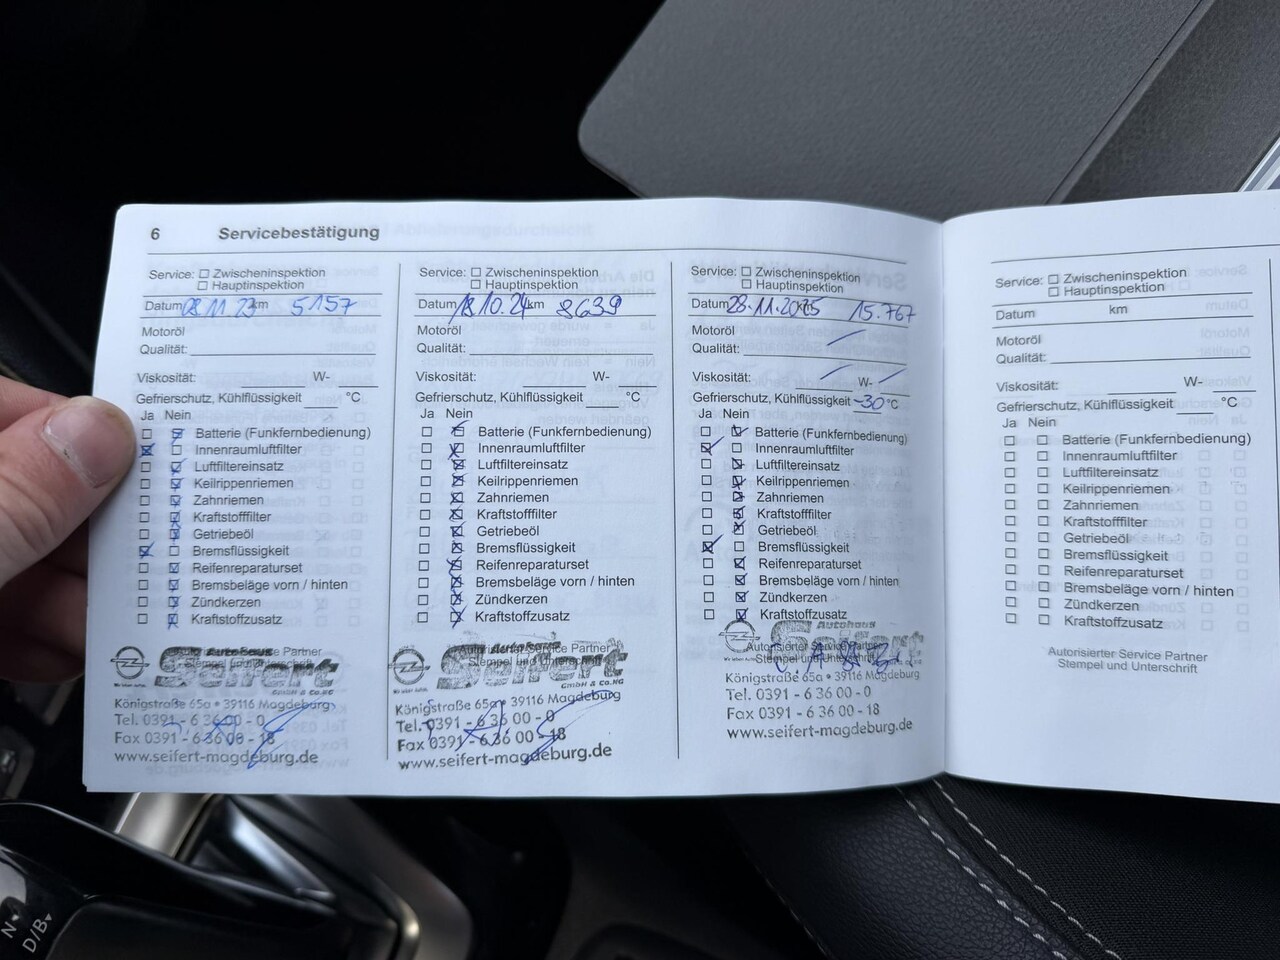 6 Servicebestätigung
Service: ☐ Zwischeninspektion
☐ Hauptinspektion
Datum 08.11.23 km 5157
Motoröl
Qualität:
Viskosität: W-
Gefrierschutz, Kühlflüssigkeit °C
Ja Nein
Batterie (Funkfernbedienung)
Innenraumluftfilter
Luftfiltereinsatz
Keilrippenriemen
Zahnriemen
Kraftstofffilter
Getriebeöl
Bremsflüssigkeit
Reifenreparaturset
Bremsbeläge vorn / hinten
Zündkerzen
Kraftstoffzusatz
Autohaus
Autorisierter Service Partner
Stempel und Unterschrift
Seifert
GmbH & Co.KG
Königstraße 65a • 39116 Magdeburg
Tel. 0391 - 6 36 00 - 0
Fax 0391 - 6 36 00 - 18
www.seifert-magdeburg.de
Service: ☐ Zwischeninspektion
☐ Hauptinspektion
Datum 18.10.24 km 8639
Motoröl
Qualität:
Viskosität: W-
Gefrierschutz, Kühlflüssigkeit °C
Ja Nein
Batterie (Funkfernbedienung)
Innenraumluftfilter
Luftfiltereinsatz
Keilrippenriemen
Zahnriemen
Kraftstofffilter
Getriebeöl
Bremsflüssigkeit
Reifenreparaturset
Bremsbeläge vorn / hinten
Zündkerzen
Kraftstoffzusatz
Autohaus
Autorisierter Service Partner
Stempel und Unterschrift
Seifert
GmbH & Co.KG
Königstraße 65a • 39116 Magdeburg
Tel. 0391 - 6 36 00 - 0
Fax 0391 - 6 36 00 - 18
www.seifert-magdeburg.de
Service: ☐ Zwischeninspektion
☐ Hauptinspektion
Datum 28.11.2025 km 15.767
Motoröl
Qualität:
Viskosität: W-
Gefrierschutz, Kühlflüssigkeit -30 °C
Ja Nein
Batterie (Funkfernbedienung)
Innenraumluftfilter
Luftfiltereinsatz
Keilrippenriemen
Zahnriemen
Kraftstofffilter
Getriebeöl
Bremsflüssigkeit
Reifenreparaturset
Bremsbeläge vorn / hinten
Zündkerzen
Kraftstoffzusatz
Autohaus
Autorisierter Service Partner
Stempel und Unterschrift
Seifert
Königstraße 65a • 39116 Magdeburg
Tel. 0391 - 6 36 00 - 0
Fax 0391 - 6 36 00 - 18
www.seifert-magdeburg.de
Service: ☐ Zwischeninspektion
☐ Hauptinspektion
Datum km
Motoröl
Qualität:
Viskosität: W-
Gefrierschutz, Kühlflüssigkeit °C
Ja Nein
Batterie (Funkfernbedienung)
Innenraumluftfilter
Luftfiltereinsatz
Keilrippenriemen
Zahnriemen
Kraftstofffilter
Getriebeöl
Bremsflüssigkeit
Reifenreparaturset
Bremsbeläge vorn / hinten
Zündkerzen
Kraftstoffzusatz
Autorisierter Service Partner
Stempel und Unterschrift
N
D/B